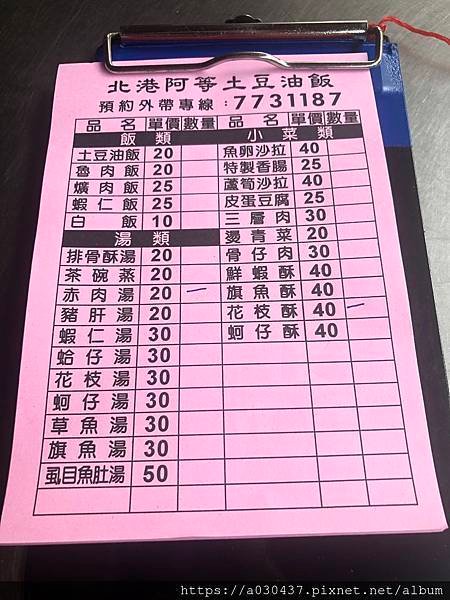 北港阿等土豆油飯
預約外帶專線:7731187
品名 單價 數量 品名 單價 數量
飯類 小菜類
土豆油飯 20 魚卵沙拉 40
魯肉飯 20 特製香腸 25
爌肉飯 25 蘆筍沙拉 40
蝦仁飯 25 皮蛋豆腐 25
白飯 10 三層肉 30
湯類 燙青菜 20
排骨酥湯 20 骨仔肉 30
茶碗蒸 20 鮮蝦酥 40
赤肉湯 20 一 旗魚酥 40
豬肝湯 20 花枝酥 40 一
蝦仁湯 30 蚵仔酥 40
蛤仔湯 30
花枝湯 30
蚵仔湯 30
草魚湯 30
旗魚湯 30
虱目魚肚湯 50
https://a030437.pixnet.net/album